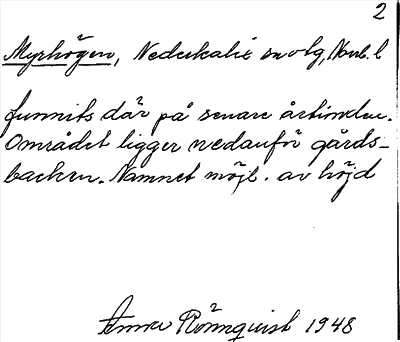 2
Myrhögen, Nederkalix sn o lg, Norrb. l
funnits där på senare årtionden.
Området ligger nedanför gårds-
backen. Namnet möjl. av höjd
Anna Rönnquist 1948